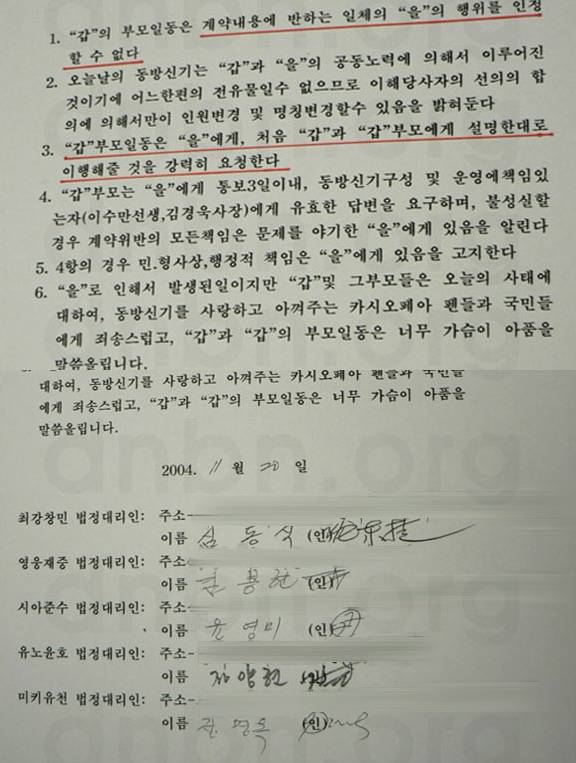 1. “갑”의 부모일동은 계약내용에 반하는 일체의 “을”의 행위를 인정
할 수 없다
2. 오늘날의 동방신기는 “갑”과 “을”의 공동노력에 의해서 이루어진
것이기에 어느한편의 전유물일수 없으므로 이해당사자의 선의의 합
의에 의해서만이 인원변경 및 명칭변경할수 있음을 밝혀둔다
3. “갑”부모일동은 “을”에게, 처음 “갑”과 “갑”부모에게 설명한대로
이행해줄 것을 강력히 요청한다
4. “갑”부모는 “을”에게 통보3일이내, 동방신기구성 및 운영에책임있
는자(이수만선생,김경욱사장)에게 유효한 답변을 요구하며, 불성실할
경우 계약위반의 모든책임은 문제를 야기한 “을”에게 있음을 알린다
5. 4항의 경우 민.형사상,행정적 책임은 “을”에게 있음을 고지한다
6. “을”로 인해서 발생된일이지만 “갑”및 그부모들은 오늘의 사태에
대하여, 동방신기를 사랑하고 아껴주는 카시오페아 팬들과 국민들
에게 죄송스럽고, “갑”과 “갑”의 부모일동은 너무 가슴이 아품을
말씀올립니다.
대하여, 동방신기를 사랑하고 아껴주는 카시오페아 팬들과 국민들
에게 죄송스럽고, “갑”과 “갑”의 부모일동은 너무 가슴이 아품을
말씀올립니다.
dnbn.org
2004. 11 월 20 일
최강창민 법정대리인: 주소-
이름 심 동 식 (인)
영웅재중 법정대리인: 주소-
이름 (인)
시아준수 법정대리인: 주소-
이름 윤 영 미 (인)
유노윤호 법정대리인: 주소-
이름 정 양 현
미키유천 법정대리인: 주소-
이름 (인)